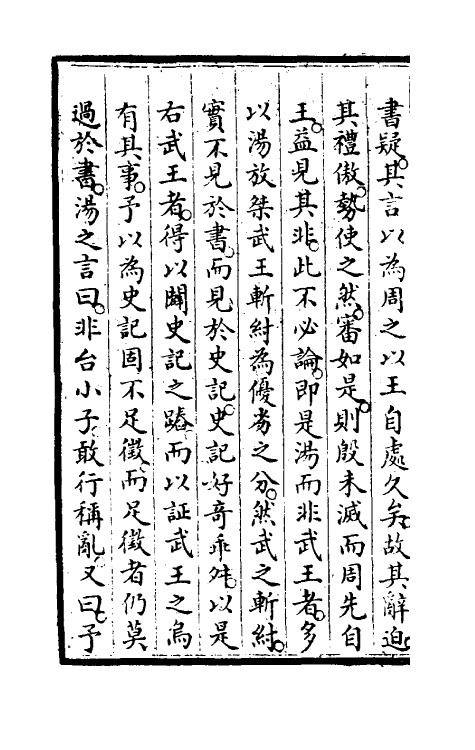 書疑其言以為周之以王自處久矣故其辭迫
其禮傲勢使之然審如是則殷未滅而周先自
王益見其非此不必論即是湯而非武王者多
以湯放桀武王斬紂為優劣之分然武之斬紂
實不見於書而見於史記史記好奇乖舛以是
右武王者得以闢史記之踳而以証武王之烏
有其事予以為史記固不足徵而足徵者仍莫
過於書湯之言曰非台小子敢行稱亂又曰予